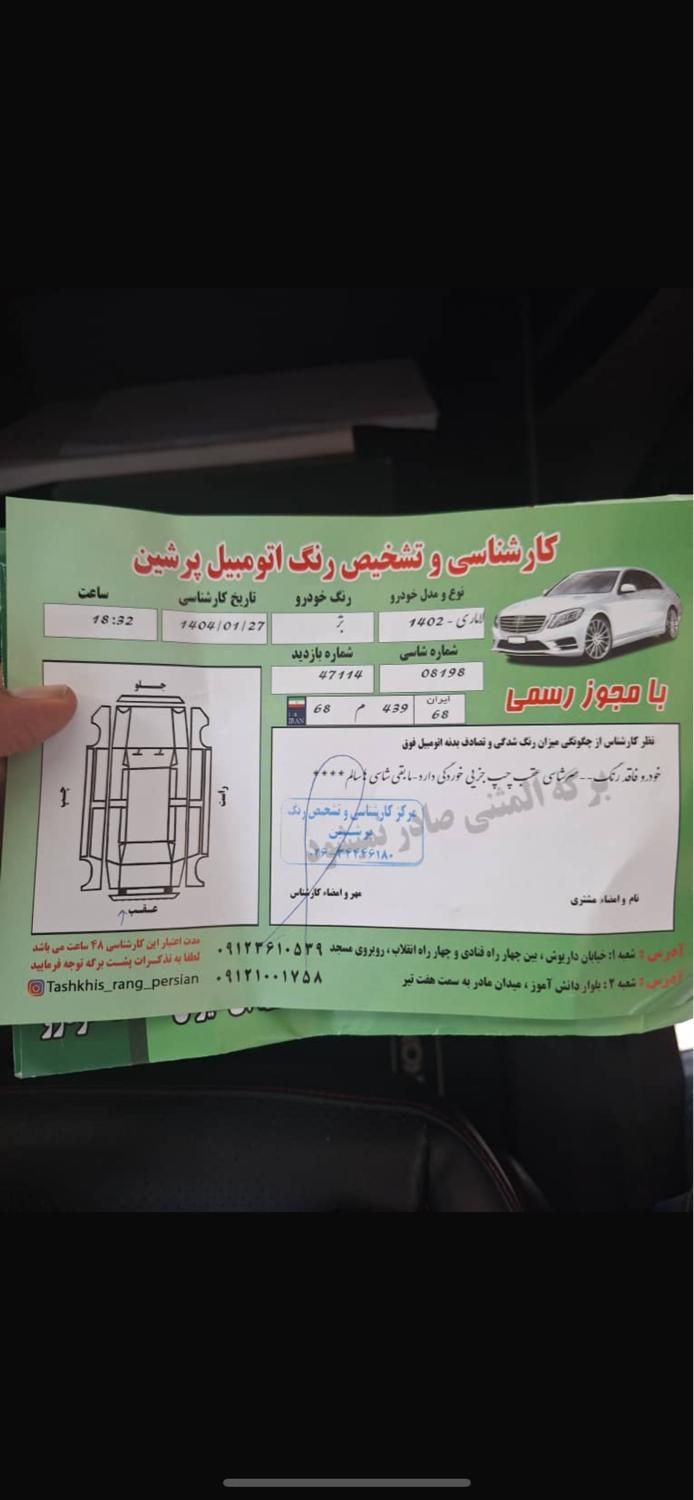 کارشناسی و تشخیص رنگ اتومبیل پرشین
نوع و مدل خودرو
رنگ خودرو
تاریخ کارشناسی
ساعت
لاماری - 1402
بژ
1404/01/27
18:32
شماره شاسی
شماره بازدید
08198
47114
ایران
68
439
م
68
I.R.
IRAN
با مجوز رسمی
نظر کارشناس از چگونگی میزان رنگ شدگی و تصادف بدنه اتومبیل فوق
خودرو فاقد رنگ--سرشاسی عقب چپ جزیی خوردگی دارد-مابقی شاسی ها سالم****
برگه المثنی صادر نمیشود
مرکز کارشناسی و تشخیص رنگ
پرشین
۰۲۶-۳۴۴۴۶۱۸۰
نام و امضاء مشتری
مهر و امضاء کارشناس
جلو
چپ
راست
عقب
مدت اعتبار این کارشناسی ۴۸ ساعت می باشد
لطفا به تذکرات پشت برگه توجه فرمایید
Tashkhis_rang_persian
آدرس: شعبه ۱: خیابان داریوش ، بین چهار راه قنادی و چهار راه انقلاب ، روبروی مسجد ۰۹۱۲۳۶۱۰۵۳۹
آدرس: شعبه ۲: بلوار دانش آموز ، میدان مادر به سمت هفت تیر ۰۹۱۲۱۰۰۱۷۵۸